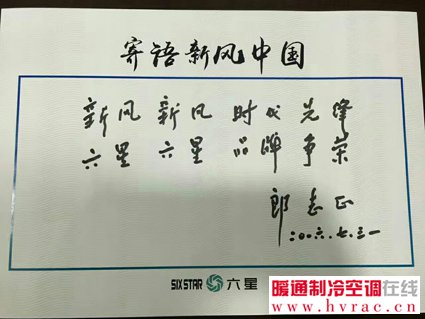 寄语新风中国
新风 新风 时代先锋
六星 六星 品牌争荣
郎志正
二〇〇六.七.三一
SIX STAR 六星
暖通制冷空调在线
www.hvrac.cn